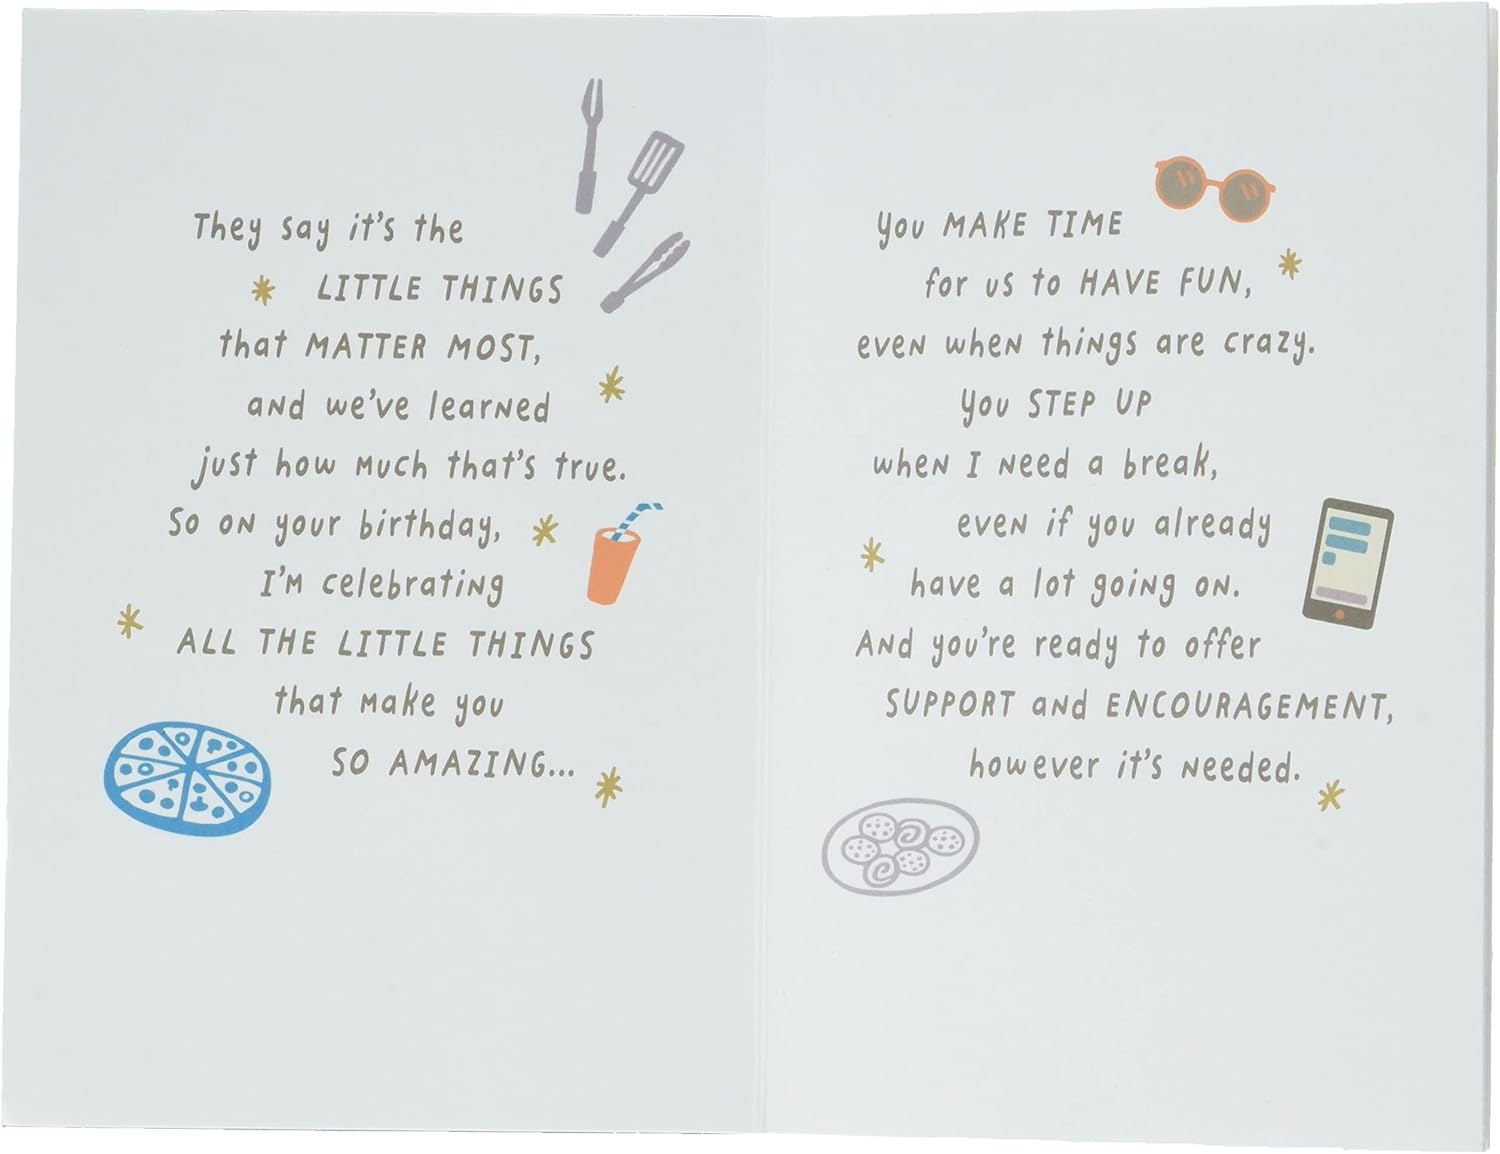 They say it's the
LITTLE THINGS
that MATTER MOST,
and we've learned
just how much that's true.
So on your birthday,
I'm celebrating
ALL THE LITTLE THINGS
that make you
SO AMAZING...
you MAKE TIME
for us to HAVE FUN,
even when things are crazy.
you STEP UP
when I need a break,
even if you already
have a lot going on.
And you're ready to offer
SUPPORT and ENCOURAGEMENT,
however it's needed.